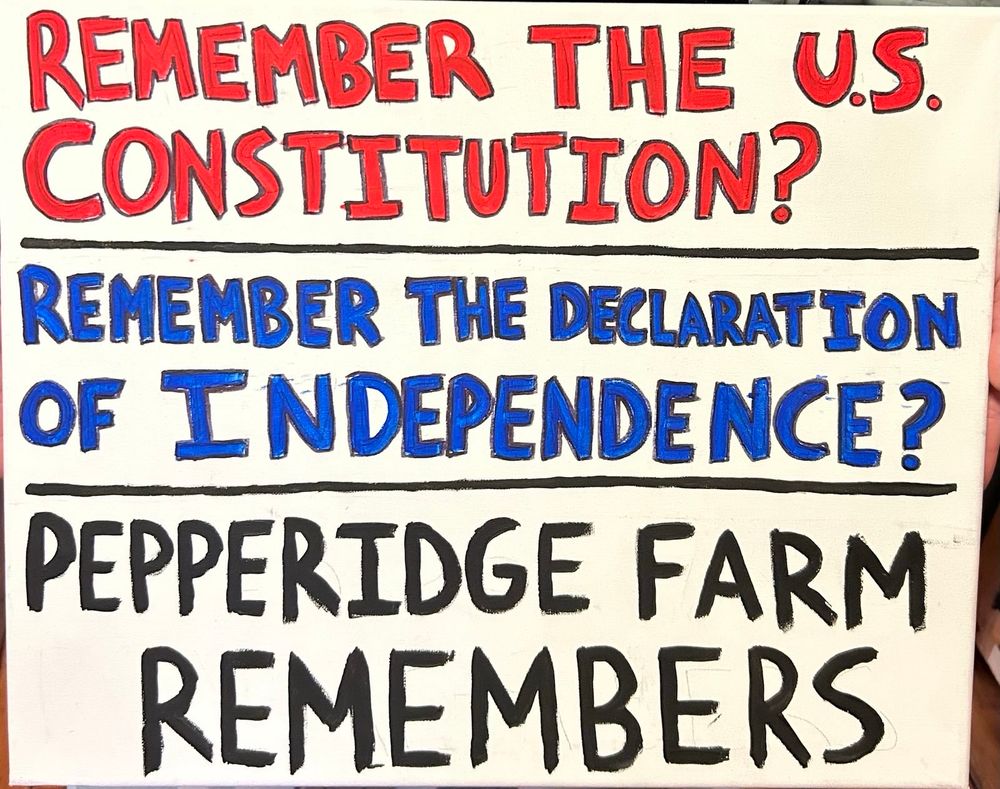 REMEMBER THE U.S.
CONSTITUTION?
REMEMBER THE DECLARATION
OF INDEPENDENCE?
PEPPERIDGE FARM
REMEMBERS